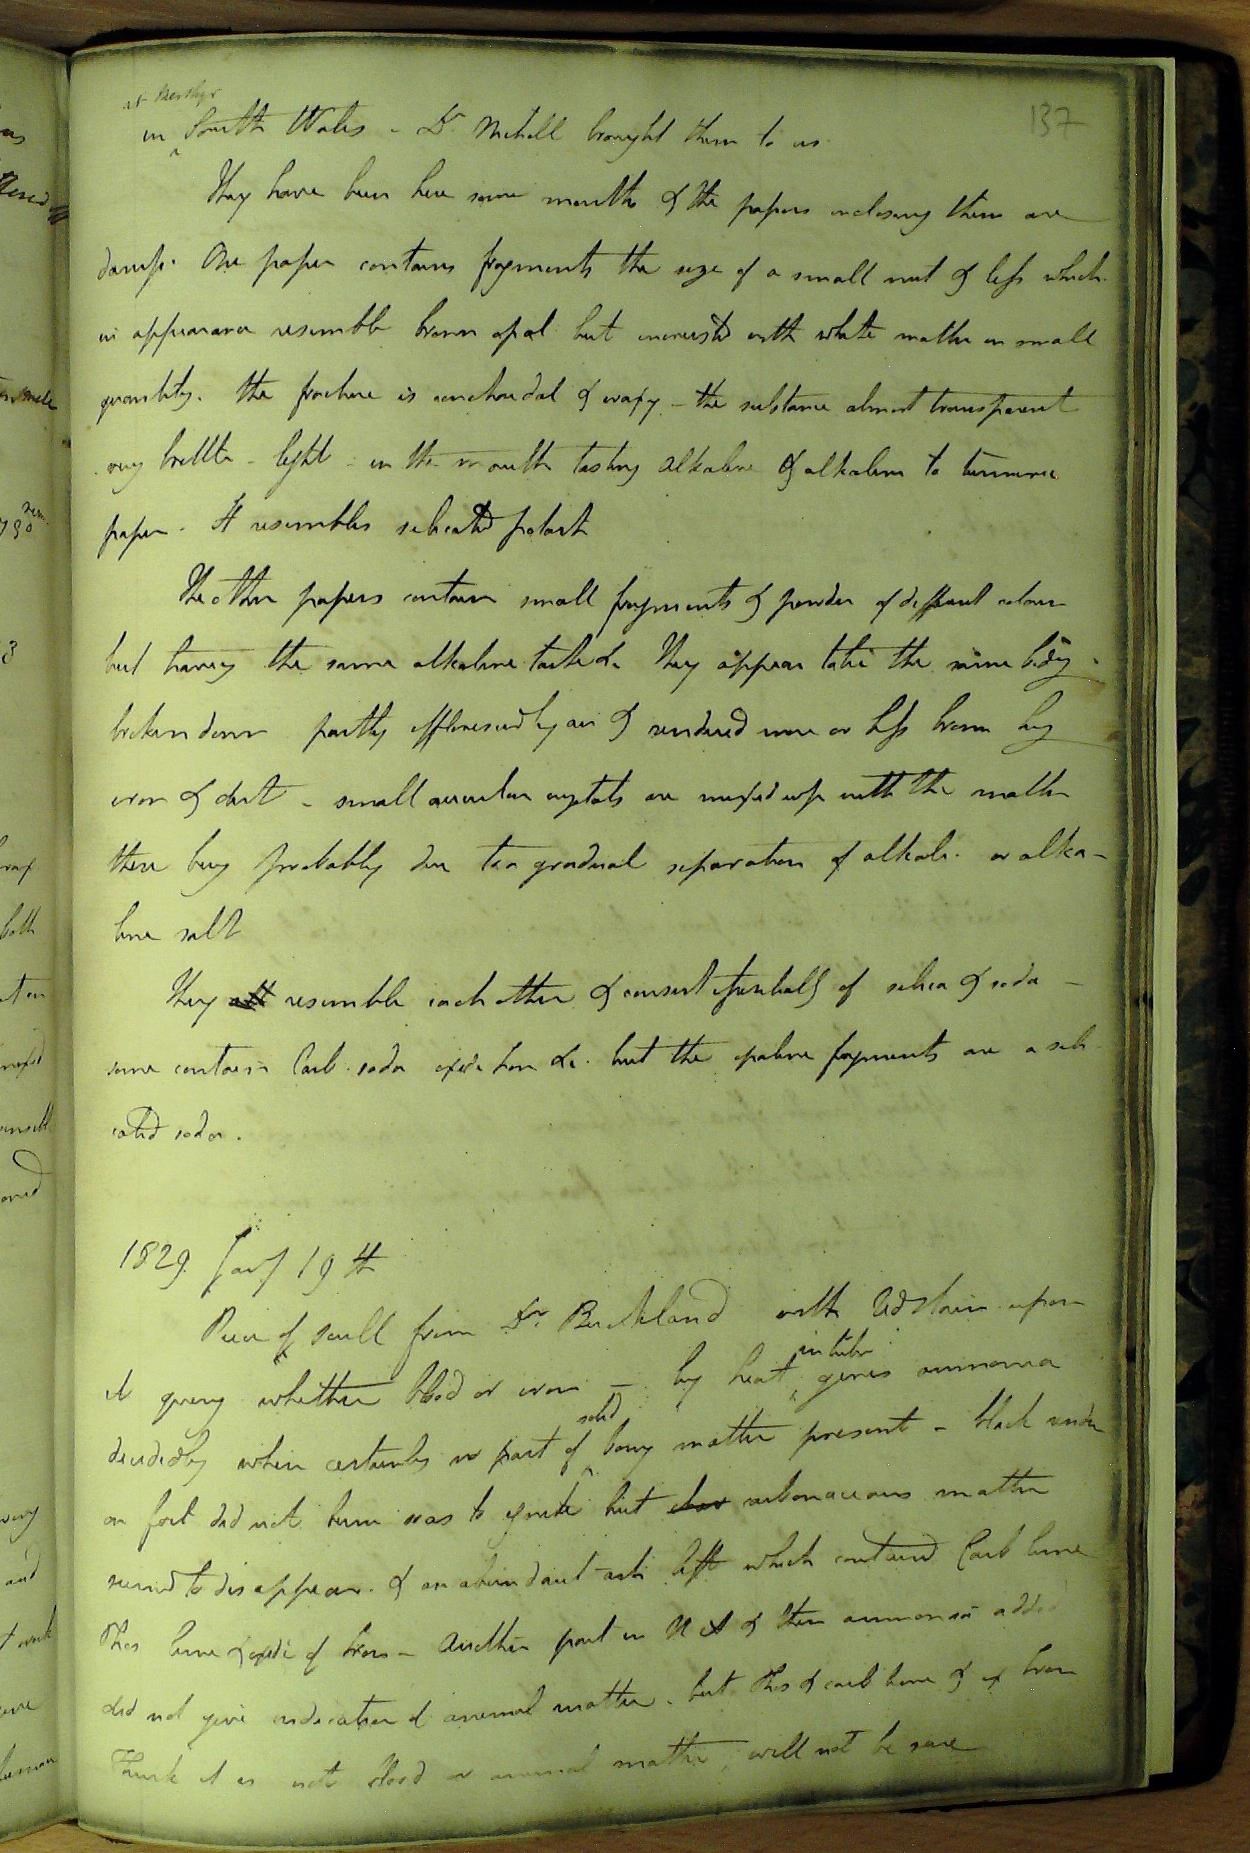 137
at Merthyr
in South Wales - Dr. Mitchell brought them to us
They have been here some months & the papers inclosing them are
damp. One paper contains fragments the size of a small nut & less which
in appearance resemble brown opal but incrusted with white matter in small
quantity. The fracture is conchoidal & waxy - the substance almost transparent
very brittle - light - in the mouth tasting alkaline & alkaline to turmeric
paper. It resembles silicated potash
The other papers contain small fragments & powder of different colours
but having the same alkaline taste &c. They appear to be the same body
broken down partly effloresced by air & rendered more or less brown by
iron & dirt - small acicular crystals are mixed up with the matter
these being probably due to a gradual separation of alkali or alka-
line salt
They all resemble each other & consist essentially of silica & soda -
some contain Carb. soda oxide Iron &c. but the opaline fragments are a sili
cated soda.
1829. Jany 19th
Piece of scull from Dr. Buckland with red stain upon
it query whether blood or iron - by heat in tube gives ammonia
decidedly when certainly no part of solid bony matter present - black under
on foil did not burn so as to ignite but carbonaceous matter
seemed to disappear & an abundant ash left which contained Carb lime
Phos lime & oxide of Iron - Another part in N A & then ammonia added
did not give indication of animal matter - but Phos & carb lime & ox Iron
Think it is not blood or animal matter, will not be sure